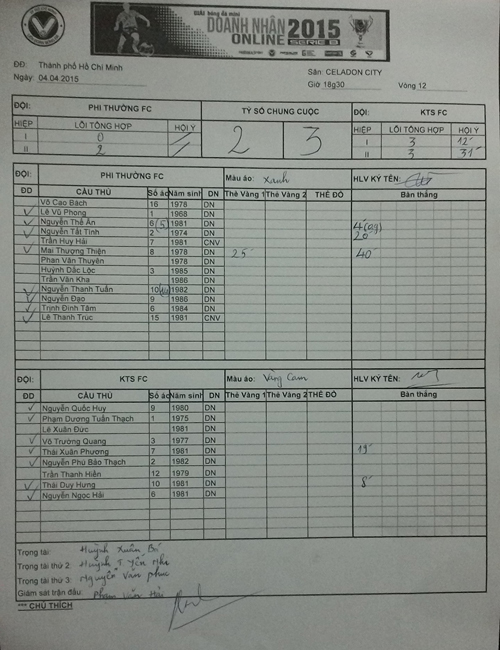 GIẢI bóng đá mini
DOANH NHÂN 2015
ONLINE SERIE B
ĐĐ: Thành phố Hồ Chí Minh
Ngày: 04.04.2015
Sân: CELADON CITY
Giờ 18g30 Vòng 12
ĐỘI: PHI THƯỜNG FC TỶ SỐ CHUNG CUỘC ĐỘI: KTS FC
HIỆP LỖI TỔNG HỢP HỘI Ý 2 3 HIỆP LỖI TỔNG HỢP HỘI Ý
I 0 I 3 12'
II 2 II 3 31'
ĐỘI: PHI THƯỜNG FC Màu áo: Xanh HLV KÝ TÊN:
ĐD CẦU THỦ Số áo Năm sinh DN Thẻ Vàng 1 Thẻ Vàng 2 THẺ ĐỎ Bàn thắng
Võ Cao Bách 16 1978 DN
Lê Vũ Phong 1 1968 DN
Nguyễn Thế Ân 6 (5) 1981 DN 4' (og)
Nguyễn Tất Tình 2 1974 DN 20'
Trần Huy Hải 7 1981 CNV
Mai Thượng Thiện 8 1978 DN 25' 40
Phan Văn Thuyên 1978 DN
Huỳnh Dắc Lộc 3 1985 DN
Trần Văn Kha 1986 DN
Nguyễn Thanh Tuấn 10 1982 DN
Nguyễn Đạo 9 1986 DN
Trịnh Đình Tâm 6 1984 DN
Lê Thanh Trúc 15 1981 CNV
ĐỘI: KTS FC Màu áo: Vàng Cam HLV KÝ TÊN:
ĐD CẦU THỦ Số áo Năm sinh DN Thẻ Vàng 1 Thẻ Vàng 2 THẺ ĐỎ Bàn thắng
Nguyễn Quốc Huy 9 1980 DN
Phạm Dương Tuấn Thạch 1 1975 DN
Lê Xuân Đức 1981 DN
Võ Trường Quang 3 1977 DN
Thái Xuân Phương 7 1981 DN 19'
Nguyễn Phú Bảo Thạch 2 1982 DN
Trần Thanh Hiền 12 1979 DN
Thái Duy Hưng 10 1981 DN 8'
Nguyễn Ngọc Hải 6 1981 DN
Trọng tài: Huỳnh Xuân
Trọng tài thứ 2: Huỳnh T. Yến Nhi
Trọng tài thứ 3: Nguyễn Văn Phúc
Giám sát trận đấu: Phạm Văn Hải
*** CHÚ THÍCH